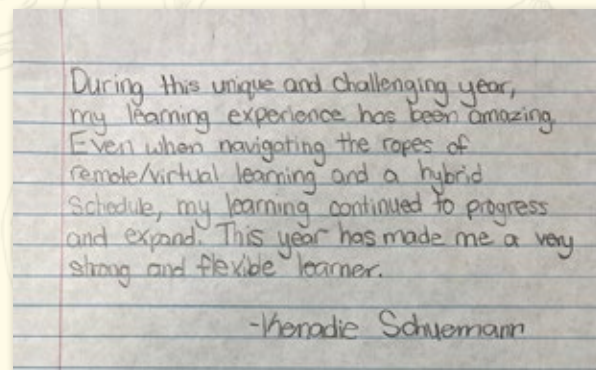 During this unique and challenging year,
my learning experience has been amazing.
Even when navigating the ropes of
remote/virtual learning and a hybrid
Schedule, my learning continued to progress
and expand. This year has made me a very
strong and flexible learner.
-Kenadie Schuemann